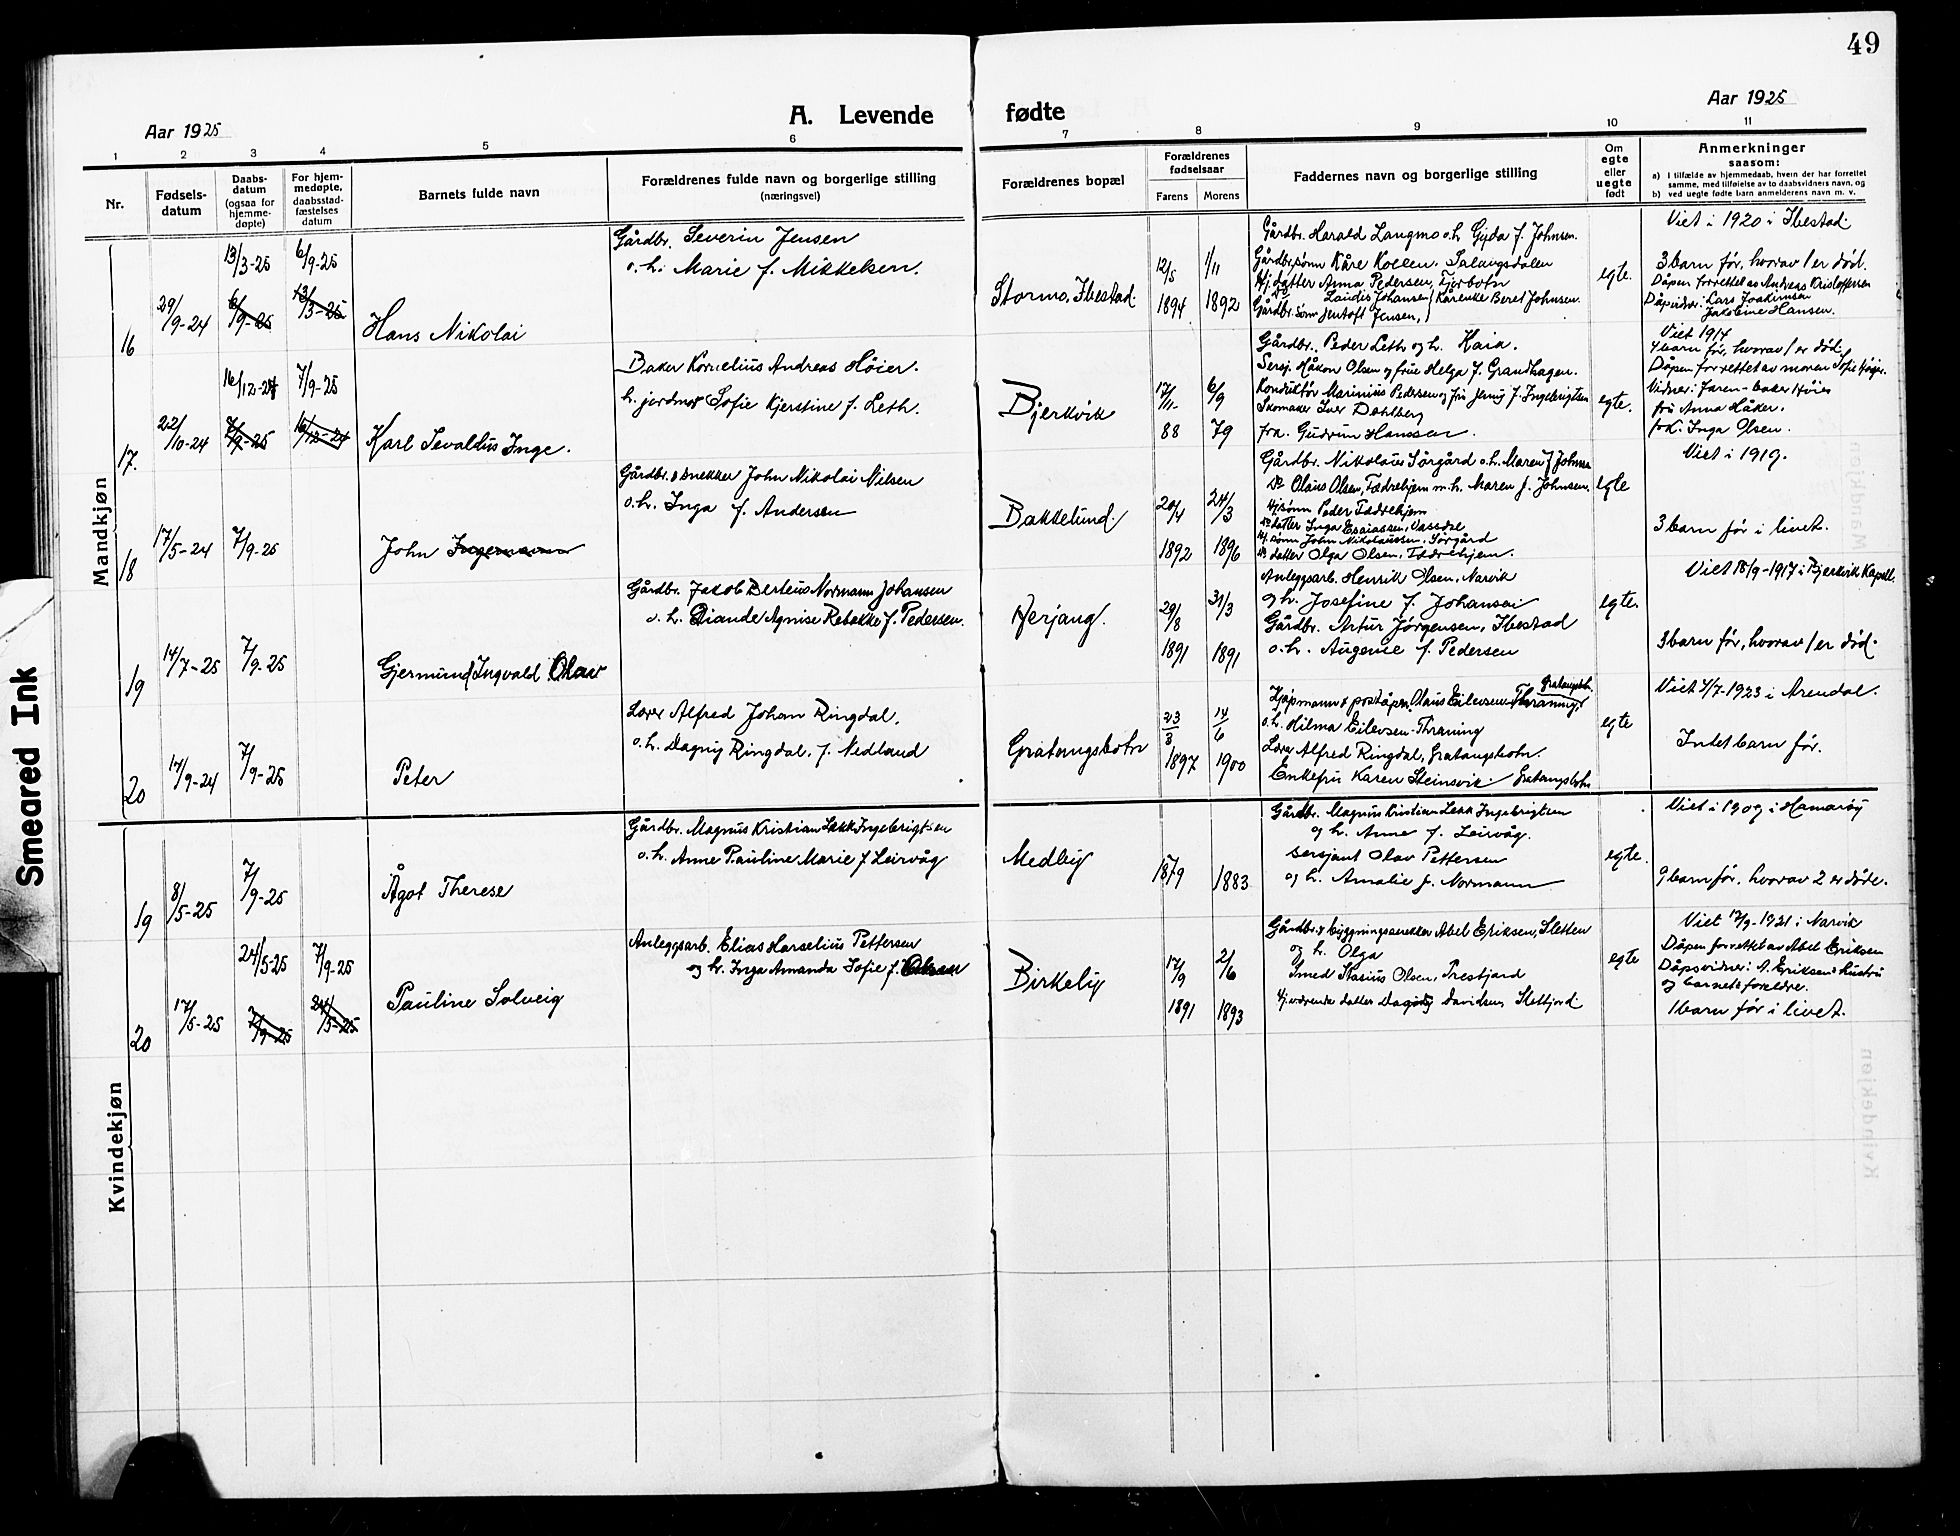 49
Aar 1925
A. Levende fødte
Aar 1925
1 2 3 4 5 6 7 8 9 10 11
Nr.
Fødsels-
datum
Daabs-
datum
(ogsaa for
hjemme-
døpte)
For hjem-
medøpte,
daabsstad-
fæstelses
datum
Barnets fulde navn
Forældrenes fulde navn og borgerlige stilling
(næringsvei)
Forældrenes bopæl
Forældrenes
fødselsaar
Farens Morens
Faddernes navn og borgerlige stilling
Om
egte
eller
uegte
født
Anmerkninger
saasom:
a) I tilfælde av hjemmedaab, hvem der har forrettet
samme, med tilføielse av to daabsvidners navn, og
b) ved uegte fødte barn anmelderens navn m. v.
Mandkjøn
16
29/9-24
13/3-25
6/9-25
6/9-25
13/3-25
Hans Nikolai
Gårdbr. Severin Jensen
o.h. Marie f. Mikkelsen.
Stormo, Ibestad.
12/5
1894
1/11
1892
Gårdbr. Harald Langmo o.h. Gyda f. Johnsen.
Gårdbr.sønn Kåre Kollen. Salangsdalen
Hj. datter Anna Pedersen, Fjordbotn
Do Laudis Johansen Kårenke Beret Johnsen.
Gårdbr. sønn Jentoft Jensen,
egte.
Viet i 1920 i Ibestad.
3 barn før, hvorav 1 er død.
Dåpen forrettet av Andreas Kristoffersen
Dåpsvidner: Lars Joakimsen
Jakobine Hansen.
17.
22/10-24
16/12-24
7/9-25
7/9-25
16/12-24
Karl Sevaldus Inge.
Baker Kornelius Andreas Høier.
h. jordmor Sofie Kjerstine f. Leth.
Bjerkvik
17/11
88
6/9
79
Gårdbr. Peder Leth og h. Kaia.
Sersj. Håkon Olsen og frue Helga f. Grandhagen.
Konduktør Marinius Pedersen og fru Jenny f. Ingebrigtsen
Skomaker Iver Dahlberg
frk. Gudrun Hanssen.
egte.
Viet 1917
4 barn før, hvorav 1 er død.
Dåpen forrettet av moren Sofie Høier.
Vidner: Faren - baker Høier
fru Anna Håker.
frk. Inga Olsen.
18
17/5-24
7/9-25
John Ingemann
Gårdbr. & snekker John Nikolai Nilsen
o.h. Inga f. Andersen
Bakkelund.
20/4
1892
24/3
1896
Gårdbr. Nikolaus Sørgård o.h. Maren f Johnsen
Do Olaus Olsen, Fædrehjem m.h. Maren f. Johnsen.
Hj.sønn Peder Fædrehjem
Do datter Inga Esaiassen, Vassdal
Hj. sønn John Nikolaussen, Sørgård
Do datter Olga Olsen, Fædrehjem.
egte
Viet i 1919.
3 barn før i livet.
19
14/7-25
7/9-25
Gjermund Ingvald Olav
Gårdbr. Jakob Berteus Normann Johansen
o.h. Diande Agnise Rebekke f. Pedersen.
Herjang.
29/8
1891
31/3
1891
Anleggsarb. Henrik Olsen, Narvik
og h. Josefine f. Johansen
Gårdbr. Artur Jørgensen, Ibestad
o.h. Augenie f. Pedersen
egte.
Viet 18/9-1917 i Bjerkvik Kapell.
3 barn før, hvorav 1 er død.
20
17/9-24
7/9-25
Peter
Lærer Alfred Johan Ringdal,
o.h. Dagny Ringdal, f. Nedland
Gratangsbotn
23/3
1897
14/6
1900
Gratangsb.
Kjøpmann & poståpn. Olaus Eilevsen-Thraning,
o.h. Hilma Eilevsen-Thraning
Lærer Alfred Ringdal, Gratangsbotn.
Enkefru Karen Steinsvik. Gratangsbotn
egte
Viet 4/7-1923 i Arendal.
Intet barn før.
Kvindekjøn
19
8/5-25
7/9-25
Ågot Therese
Gårdbr. Magnus Kristian Lekk Ingebrigtsen
o.h. Anne Pauline Marie f Leirvåg
Medby
1879
1883
Gårdbr. Magnus Kristian Lekk Ingebrigtsen
og h. Anne f. Leirvåg.
Sersjant Olav Pettersen
og h. Amalie f. Normann
egte.
Viet i 1909 i Hamarøy
9 barn før, hvorav 2 er døde.
20
17/5-25
24/5-25
7/9-25
7/9-25
24/5-25
Pauline Solveig
Anleggsarb. Elias Harselius Pettersen
og h. Inga Amanda Sofie f. Olsen
Birkely
17/9
1891
2/6
1893
Gårdbr. & bygningssnekker Abel Eriksen, Sletten
og h. Olga
Smed Stasius Olsen, Prestjord
Hj.værende datter Dagny Davidsen, Sletfjord.
egte
Viet 17/9-1921 i Narvik
Dåpen forrettet av Abel Eriksen
Dåpsvidner: A. Eriksens hustru
og barnets foreldre.
1 barn før i livet.
Smeared Ink